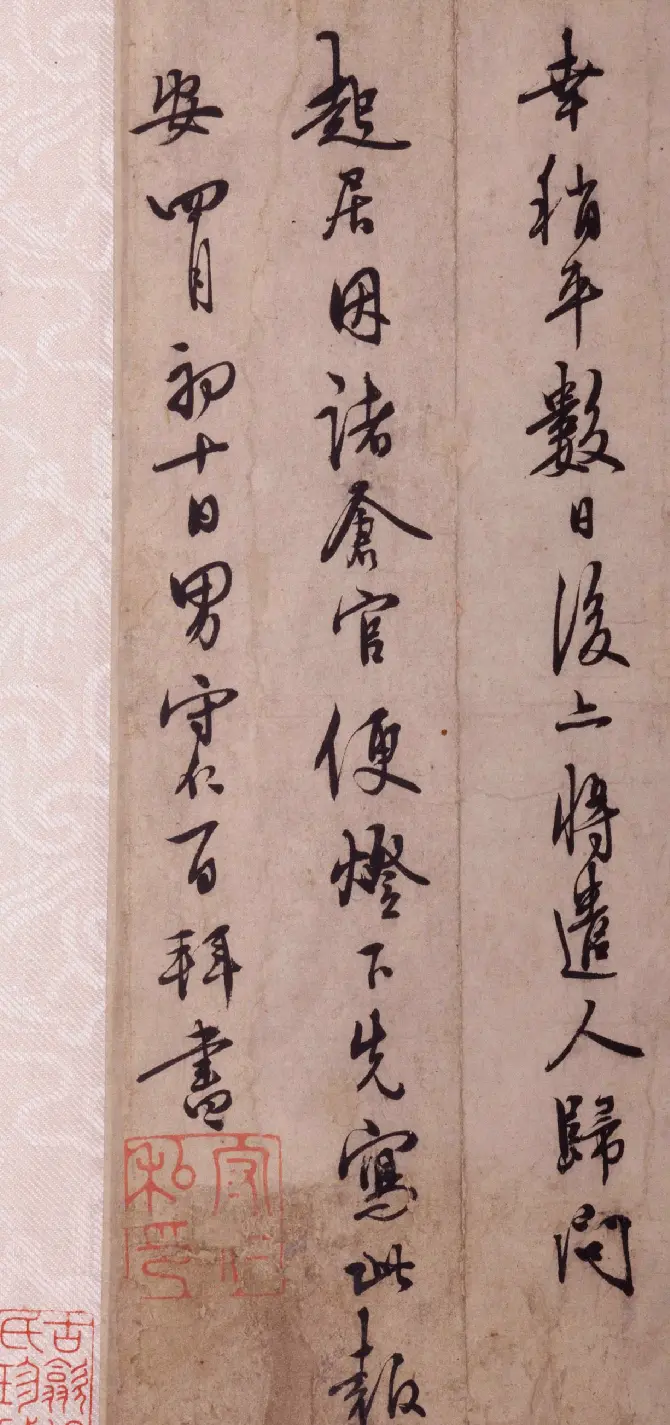 幸稍平數日後亦將遣人歸問
起居因諸倉官便燈下先寫此報
安四月初十日男守仁百拜書
守仁私印